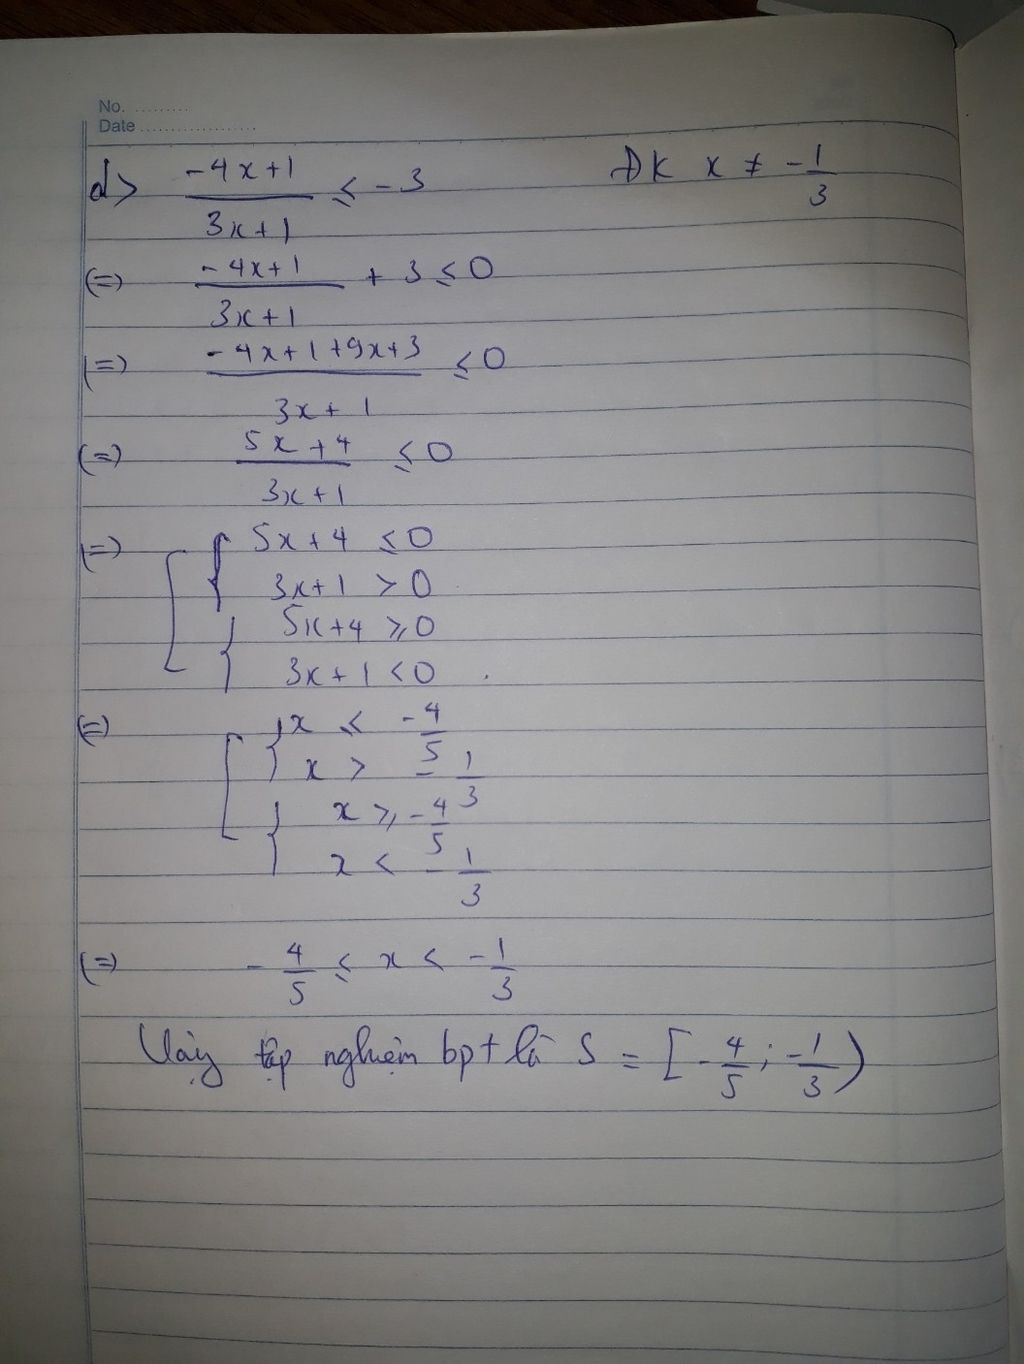 No. .........
Date ...................
d> -4x+1/3x+1 ≤ -3 ĐK x ≠ -1/3
(=) -4x+1/3x+1 + 3 ≤ 0
(=) -4x+1+9x+3/3x+1 ≤ 0
(=) 5x+4/3x+1 ≤ 0
(=) [ { 5x+4 ≤ 0
3x+1 > 0
{ 5x+4 ≥ 0
3x+1 < 0
(=) [ { x ≤ -4/5
x > -1/3
{ x ≥ -4/5
x < -1/3
(=) -4/5 ≤ x < -1/3
Vậy tập nghiệm bpt là S = [-4/5; -1/3)